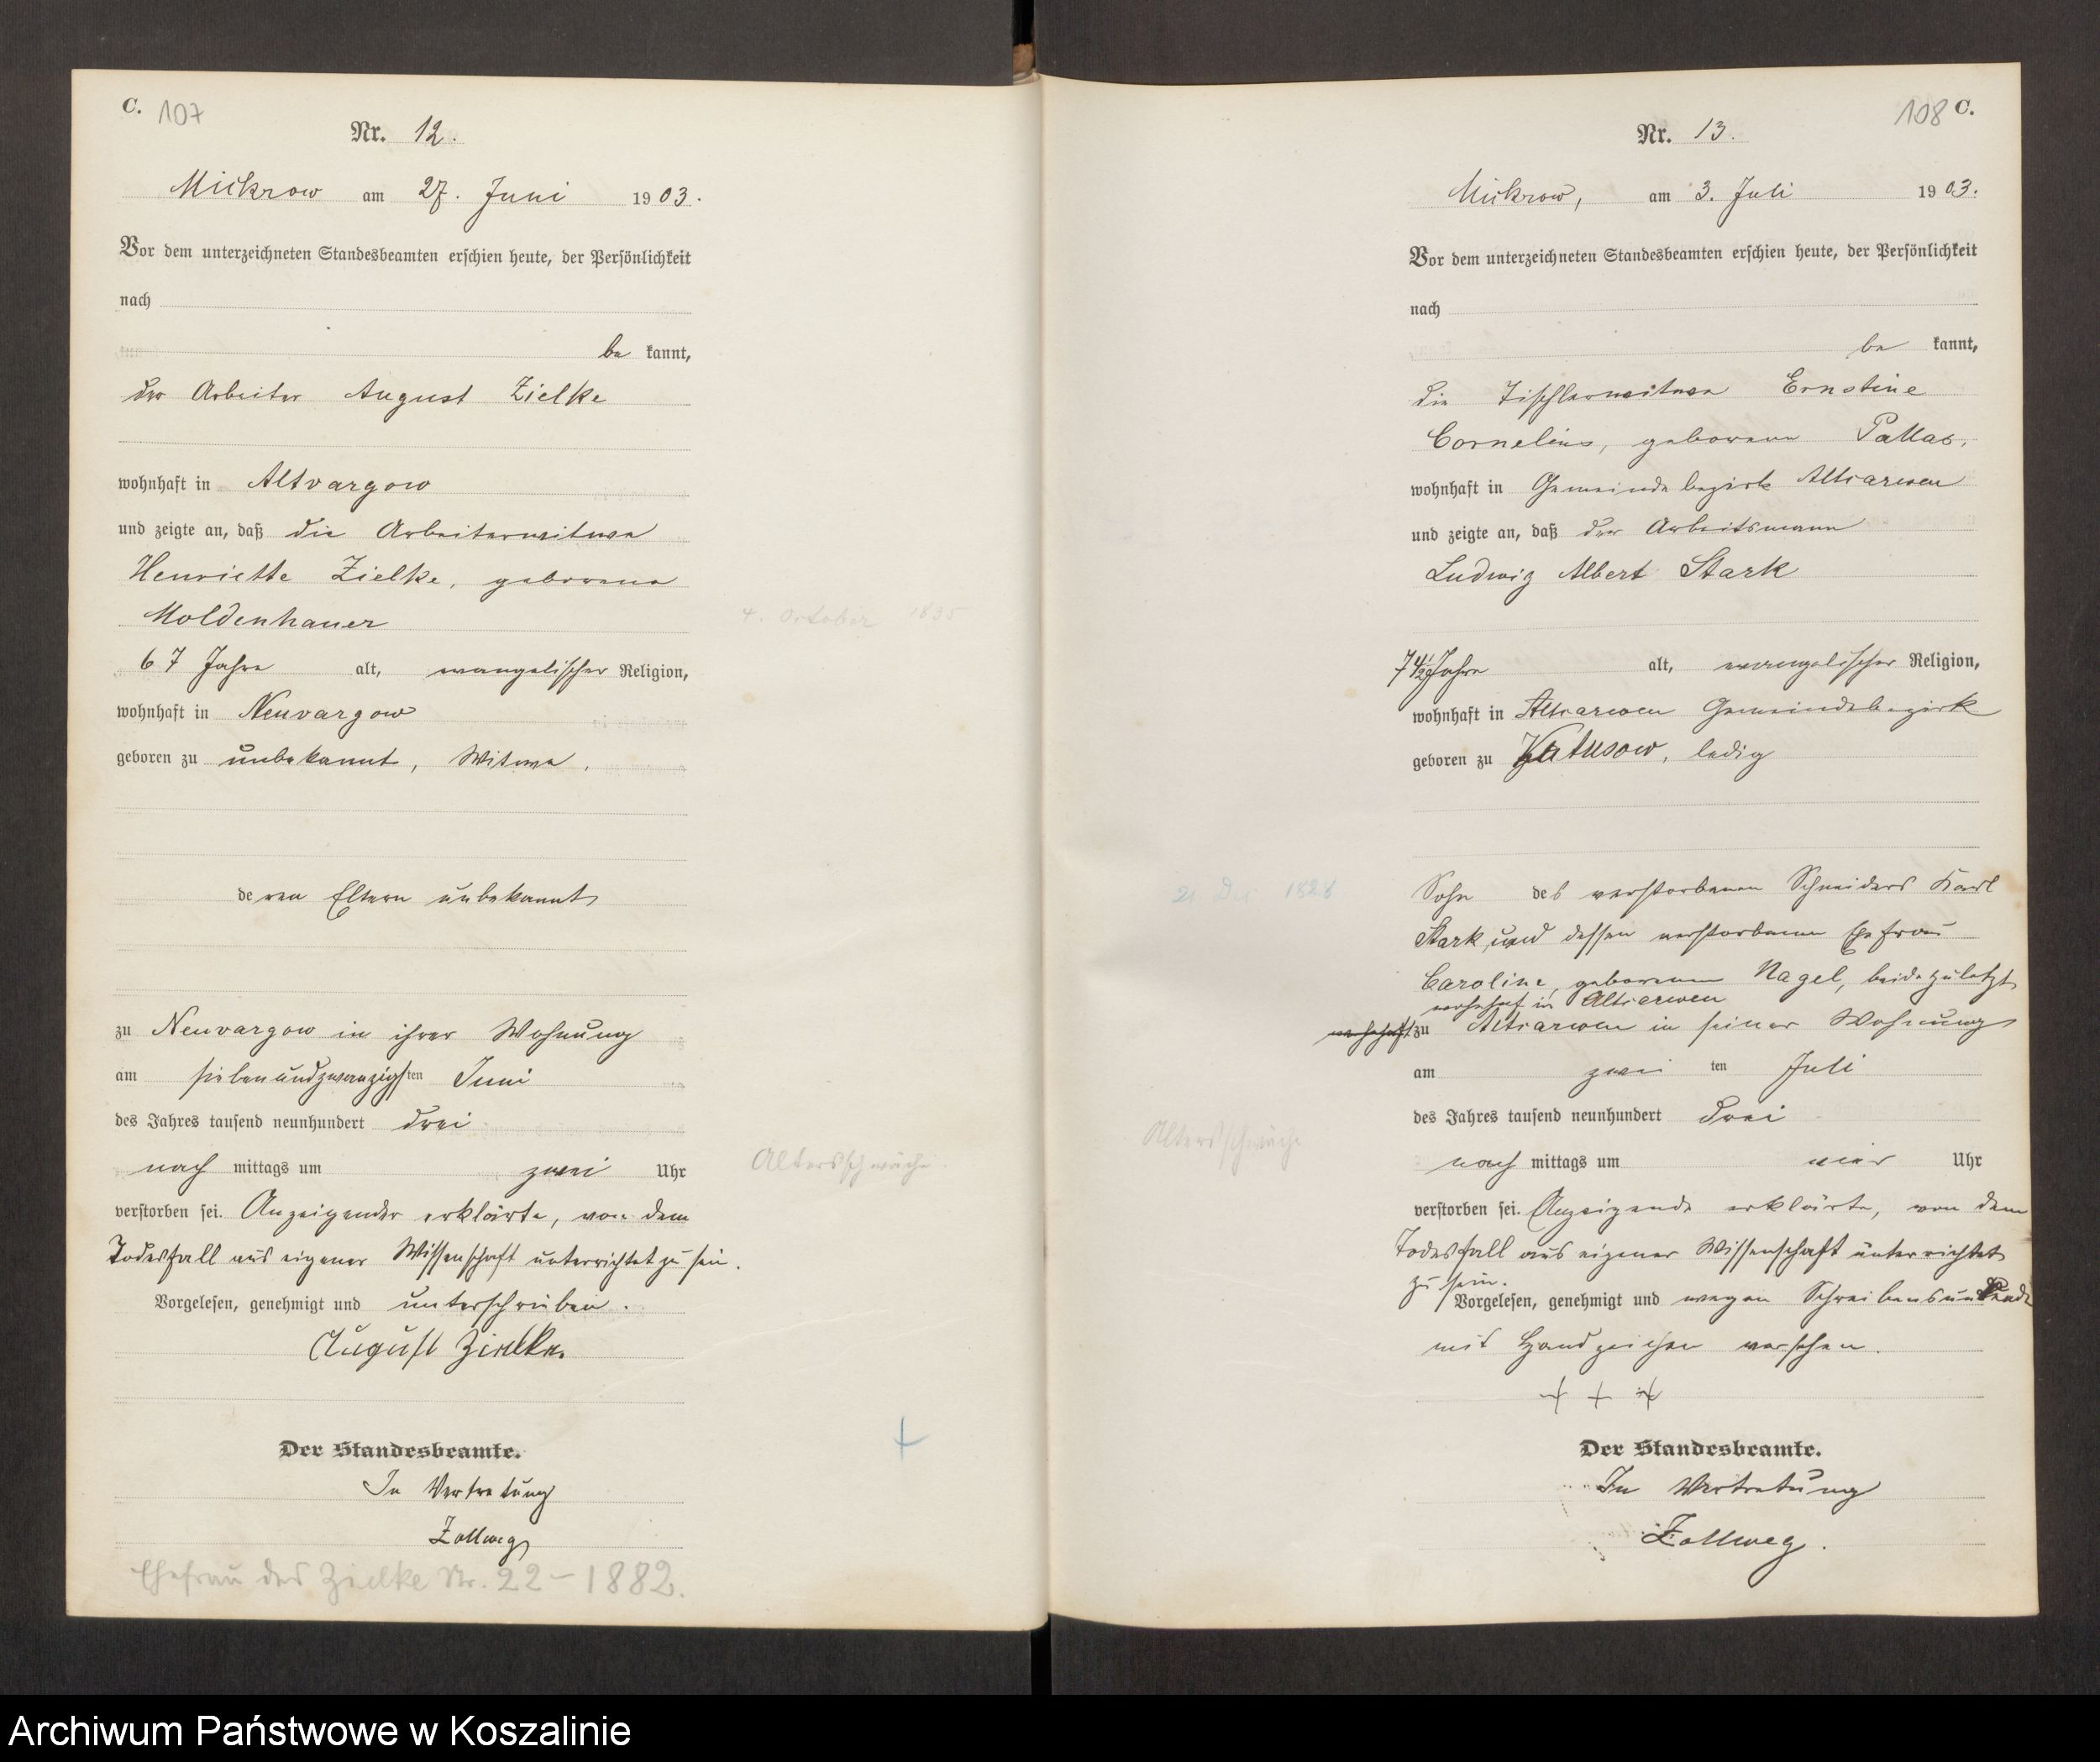 C. 107
Nr. 12.
Mickrow am 27. Juni 1903.
Vor dem unterzeichneten Standesbeamten erschien heute, der Persönlichkeit
nach
be kannt,
der Arbeiter August Zielke
wohnhaft in Altvargow
und zeigte an, daß die Arbeiterwitwe
Henriette Zielke, geborene
Moldenhauer
4. October 1835
67 Jahre alt, evangelischer Religion,
wohnhaft in Neuvargow
geboren zu unbekannt, Witwe,
deren Eltern unbekannt
zu Neuvargow in ihrer Wohnung
am siebenundzwanzigsten Juni
des Jahres tausend neunhundert drei
nach mittags um zwei Uhr
Altersschwäche
verstorben sei. Anzeigender erklärte, von dem
Todesfall aus eigener Wissenschaft unterrichtet zu sein.
Vorgelesen, genehmigt und unterschrieben.
August Zielke.
Der Standesbeamte.
In Vertretung
Zollweg
Ehefrau des Zielke Nr. 22-1882.
108 C.
Nr. 13.
Mickrow, am 3. Juli 1903.
Vor dem unterzeichneten Standesbeamten erschien heute, der Persönlichkeit
nach
be kannt,
die Tischlerwitwe Ernstine
Cornelius, geborene Pallas,
wohnhaft in Gemeindebezirk Altjarwen
und zeigte an, daß der Arbeitsmann
Ludwig Albert Stark
74 1/2 Jahre alt, evangelischer Religion,
wohnhaft in Altjarwen Gemeindebezirk
geboren zu Katusow, ledig
21 Dez 1828
Sohn des verstorbenen Schneiders Karl
Stark und dessen verstorbenen Ehefrau
Caroline, geborenen Nagel, beide zuletzt
wohnhaft in Altjarwen
wohnhaft zu Altjarwen in seiner Wohnung
am zwei ten Juli
des Jahres tausend neunhundert drei
Altersschwäche
nach mittags um vier Uhr
verstorben sei. Anzeigende erklärte, von dem
Todesfall aus eigener Wissenschaft unterrichtet
zu sein.
Vorgelesen, genehmigt und wegen Schreibensunkunde
mit Handzeichen versehen.
+ + +
Der Standesbeamte.
In Vertretung
Zollweg.
Archiwum Państwowe w Koszalinie